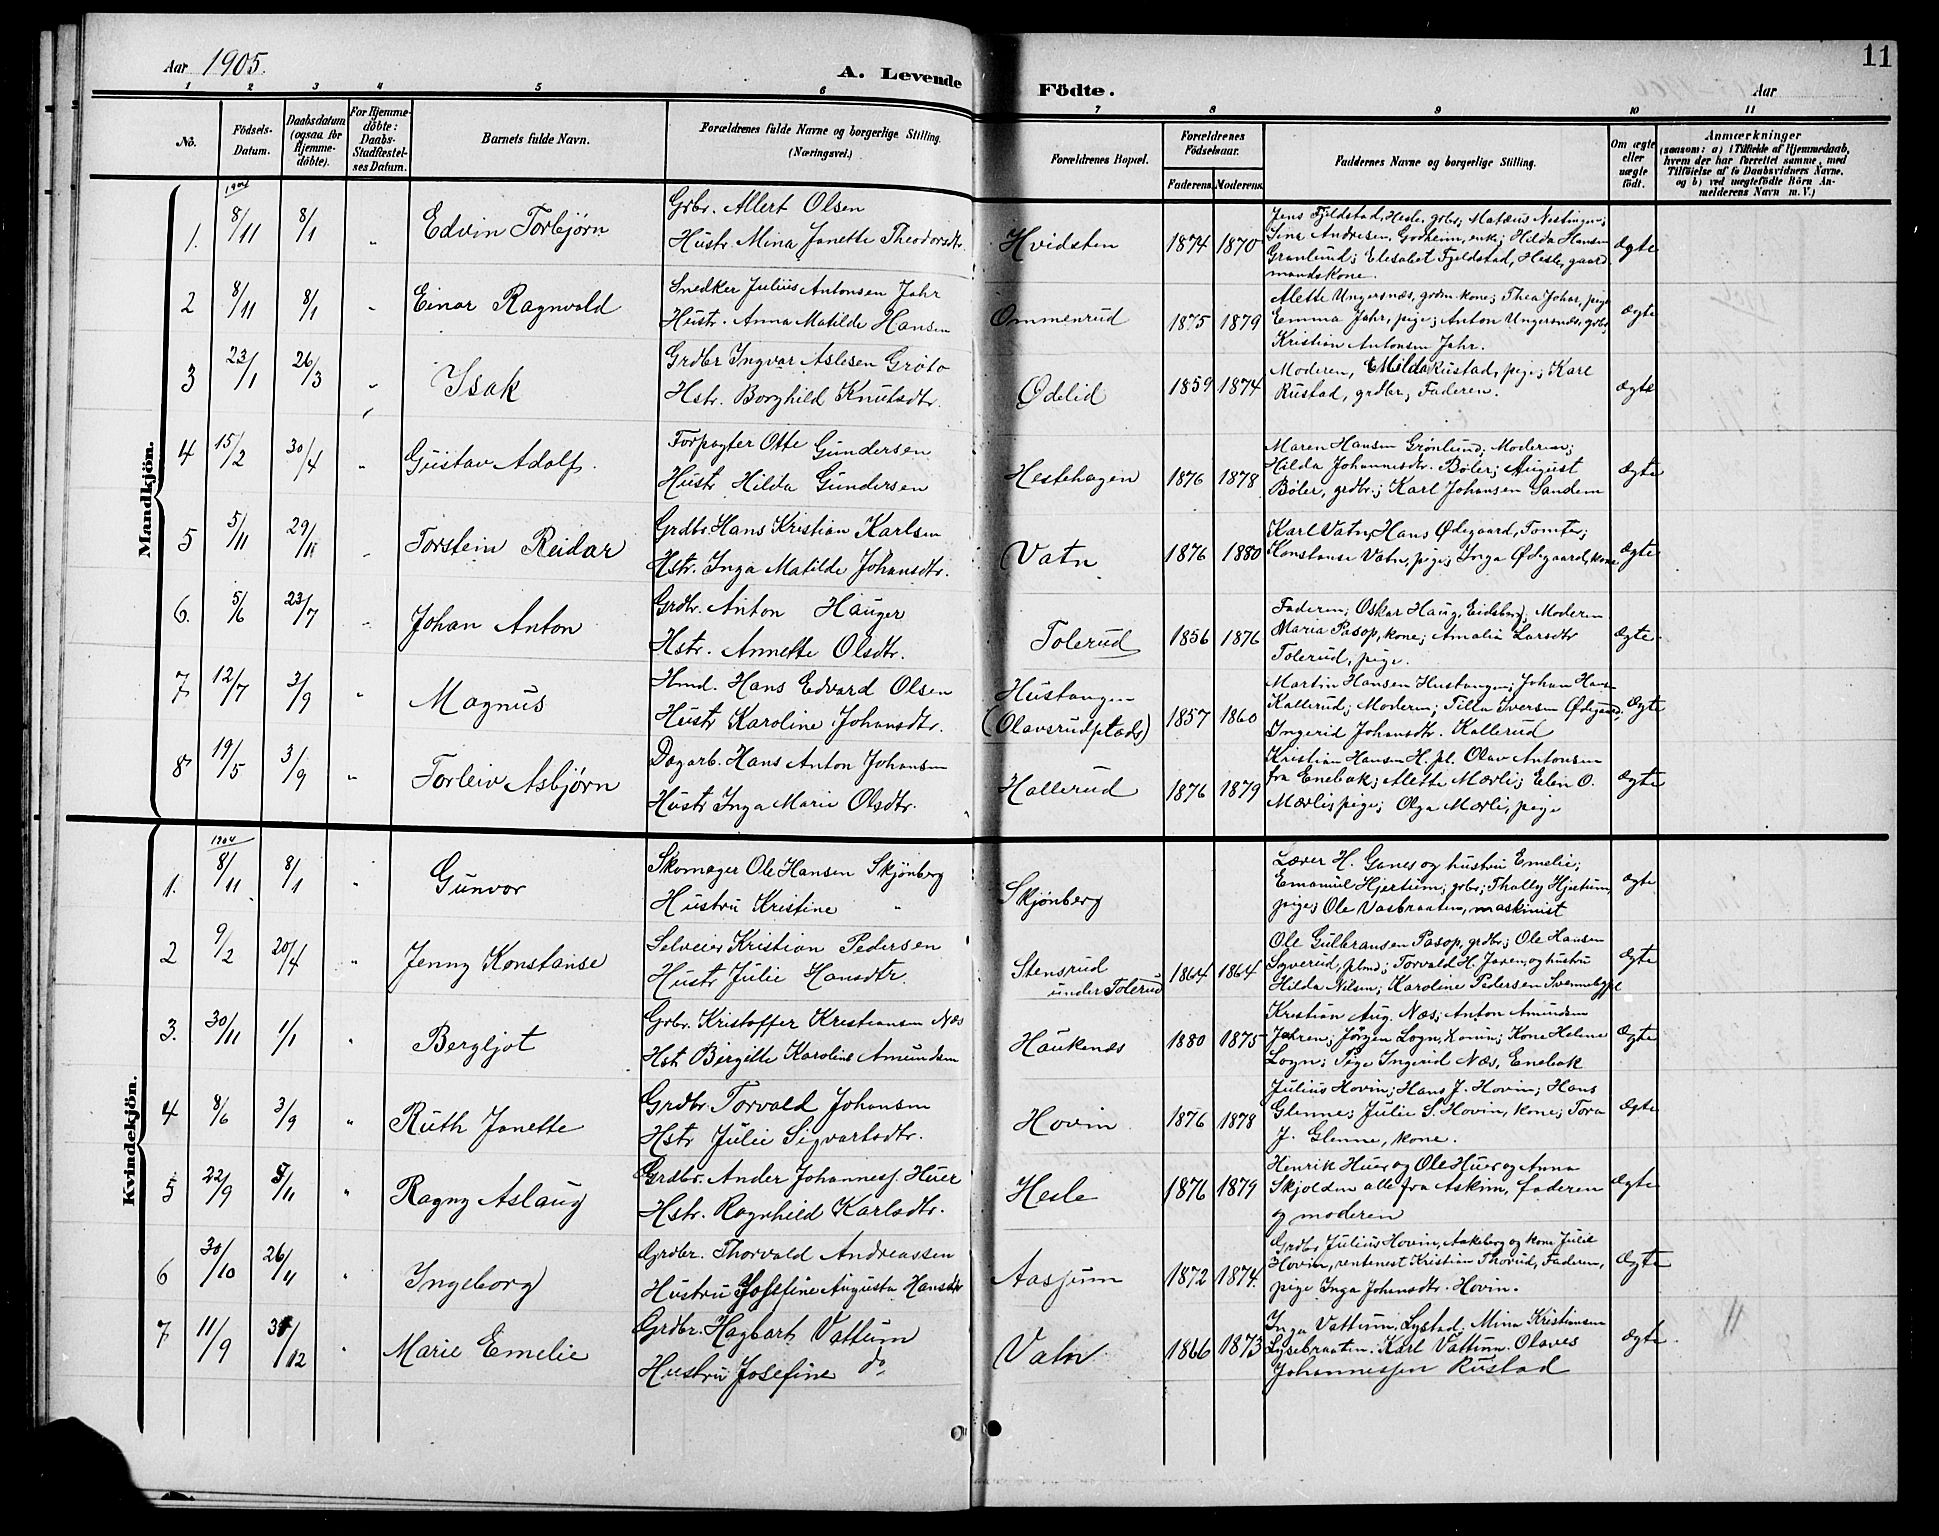 11
Aar 1905. A. Levende Födte. Aar
1 2 3 4 5 6 7 8 9 10 11
No. Födsels-Datum. Daabsdatum (ogsaa for Hjemme-döbte). For Hjemme-döbte: Daabs-Stadfæstel-ses Datum. Barnets fulde Navn. Forældrenes fulde Navne og borgerlige Stilling. (Næringsvei.) Forældrenes Bopæl. Forældrenes Födselsaar. Faderens. Moderens. Faddernes Navne og borgerlige Stilling. Om ægte eller uægte födt. Anmærkninger (saasom: a) i Tilfælde af Hjemmedaab, hvem der har forrettet samme, med Tilföielse af to Daabsvidners Navne, og b) ved uægtefödte Börn An-melderens Navn m. V.)
Mandkjön.
1904
1. 8/11 8/1 " Edvin Torbjørn Grbr. Allert Olsen
Hustr. Mina Janette Theodorsdtr. Hvidsten 1874 1870 Ægte
Jens Fjeldstad, Hesle, grbr, Matæus Nestingen;
Sina Andresen, Godheim, enk; Hilda Hansen
Granlund; Elesabet Fjeldstad, Hesle, gaard
mandskone.
2 8/11 8/1 " Einar Ragnvald Snedker Julius Antonsen Jahr
Hustr. Anna Matilde Hansen Ommenrud 1875 1879 Ægte
Alette Ungersnæs, grdm. kone; Thea Johas, pige
Emma Jahr, pige; Anton Ungersnæs, grdbr,
Kristian Antonsen Jahr.
3 23/1 26/3 " Isak Grdbr Ingvar Aslesen Gröto
Hstr. Borghild Knutsdtr. Ødelid 1859 1874 Ægte
Moderen, Milda Rustad, pige; Karl
Rustad, grdbr; Faderen.
4 15/2 30/4 " Gustav Adolf. Forpagter Otte Gundersen
Hustr Hilda Gundersen Hestehagen 1876 1878 Ægte
Maren Hansen Grönlund; Moderen;
Hilda Johannesdtr. Böler; August
Böler, grdbr.; Karl Johansen Sandem
5 5/11 29/11 " Torstein Reidar Grdbr Hans Kristian Karlsen
Hstr. Inga Matilde Johansdtr. Vatn 1876 1880 Ægte
Karl Vatn; Hans Ødegaard, Tomter;
Konstanse Vatn, pige; Inga Ødegaard, kone
6. 5/6 23/7 " Johan Anton Grdbr. Anton Hauger
Hstr. Annette Olsdtr. Tolerud 1856 1876 Ægte
Faderen; Oskar Haug, Eidsberg; Moderen
Maria Pasop, kone; Amalia Larsdtr
Tolerud, pige.
7 12/7 3/9 " Magnus Hmd. Hans Edvard Olsen
Hustr Karoline Johansdtr. Hustangen
(Olavsrudplads) 1857 1860 Ægte
Martin Hansen Hustangen; Johan Hans
Kallerud; Moderen; Tilla Iversen Ødegaard;
Ingerid Johansdtr. Kallerud
8 19/5 3/9 " Torleiv Asbjørn Dagarb. Hans Anton Johansen
Hustr Inga Marie Olsdtr. Hallerud 1876 1879 Ægte
Kristian Hansen H. pl. Olav Antonsen
fra Enebak; Alette Mærli; Elin O.
Mærli, pige; Olga Mærli, pige
Kvindekjön.
1904
1. 8/11 8/1 " Gunvor Skomager Ole Hansen Skjönberg
Hustru Kristine " Skjønberg Ægte
Lærer H. Ganes og hustru Emelie;
Emanuel Hjertum; grbr; Thally Hjertum,
pige; Ole Vasbraaten, maskinist
2 9/2 20/4 " Jenny Konstanse Selveier Kristian Pedersen
Hustr Julie Hansdtr. Stensrud
under Tolerud 1864 1864 Ægte
Ole Gulbransen Pasop, grdbr; Ole Hansen
Syverud, plmd; Torvald H. Jaren, og hustru
Hilda Nilsen; Karoline Pedersen Svennebypl
3. 30/11 1/1 " Bergljot Grbr. Kristoffer Kristiansen Næs
Hst Birgitte Karoline Amundsen Haukenæs 1880 1875 Ægte
Kristian Aug. Næs; Anton Amundsen
Jahren; Jörgen Logn, Kone Helene
Logn; Pige Ingerid Næs, Enebak
4 8/6 3/9 " Ruth Janette Grdbr. Torvald Johansen
Hstr Julie Sigvartsdtr. Hovin 1876 1878 Ægte
Julius Hovin; Hans J. Hovin; Hans
Glenne; Julie S. Hovin, kone; Tora
J. Glenne, kone.
5 22/9 5/11 " Ragny Aslaug Grdbr. Ander Johanness. Huer
Hstr. Ragnhild Karlsdtr. Hesle 1876 1879 Ægte
Henrik Huer og Ole Huer og Anna
Skjolden alle fra Askim, faderen
og moderen
6 30/10 26/11 " Ingeborg Grdbr. Thorvald Andreassen
Hustru Josefine Augusta Hansdtr Aasjum 1872 1874. Ægte
Grdbr Julius Hovin, Aakeberg og kone Julie
Hovin, rentenest Kristian Thorud, Faderen,
pige Inga Johansdtr. Hovin.
7 11/9 /12 " Marie Emelie Grdbr. Hagbart Vattum
Hustru Josefine do. Vatn 1866 1873 Ægte
Inga Vattum, Lystad. Mina Kristiansen
Lysebraaten. Karl Vattum. Olaves
Johannessen Rustad